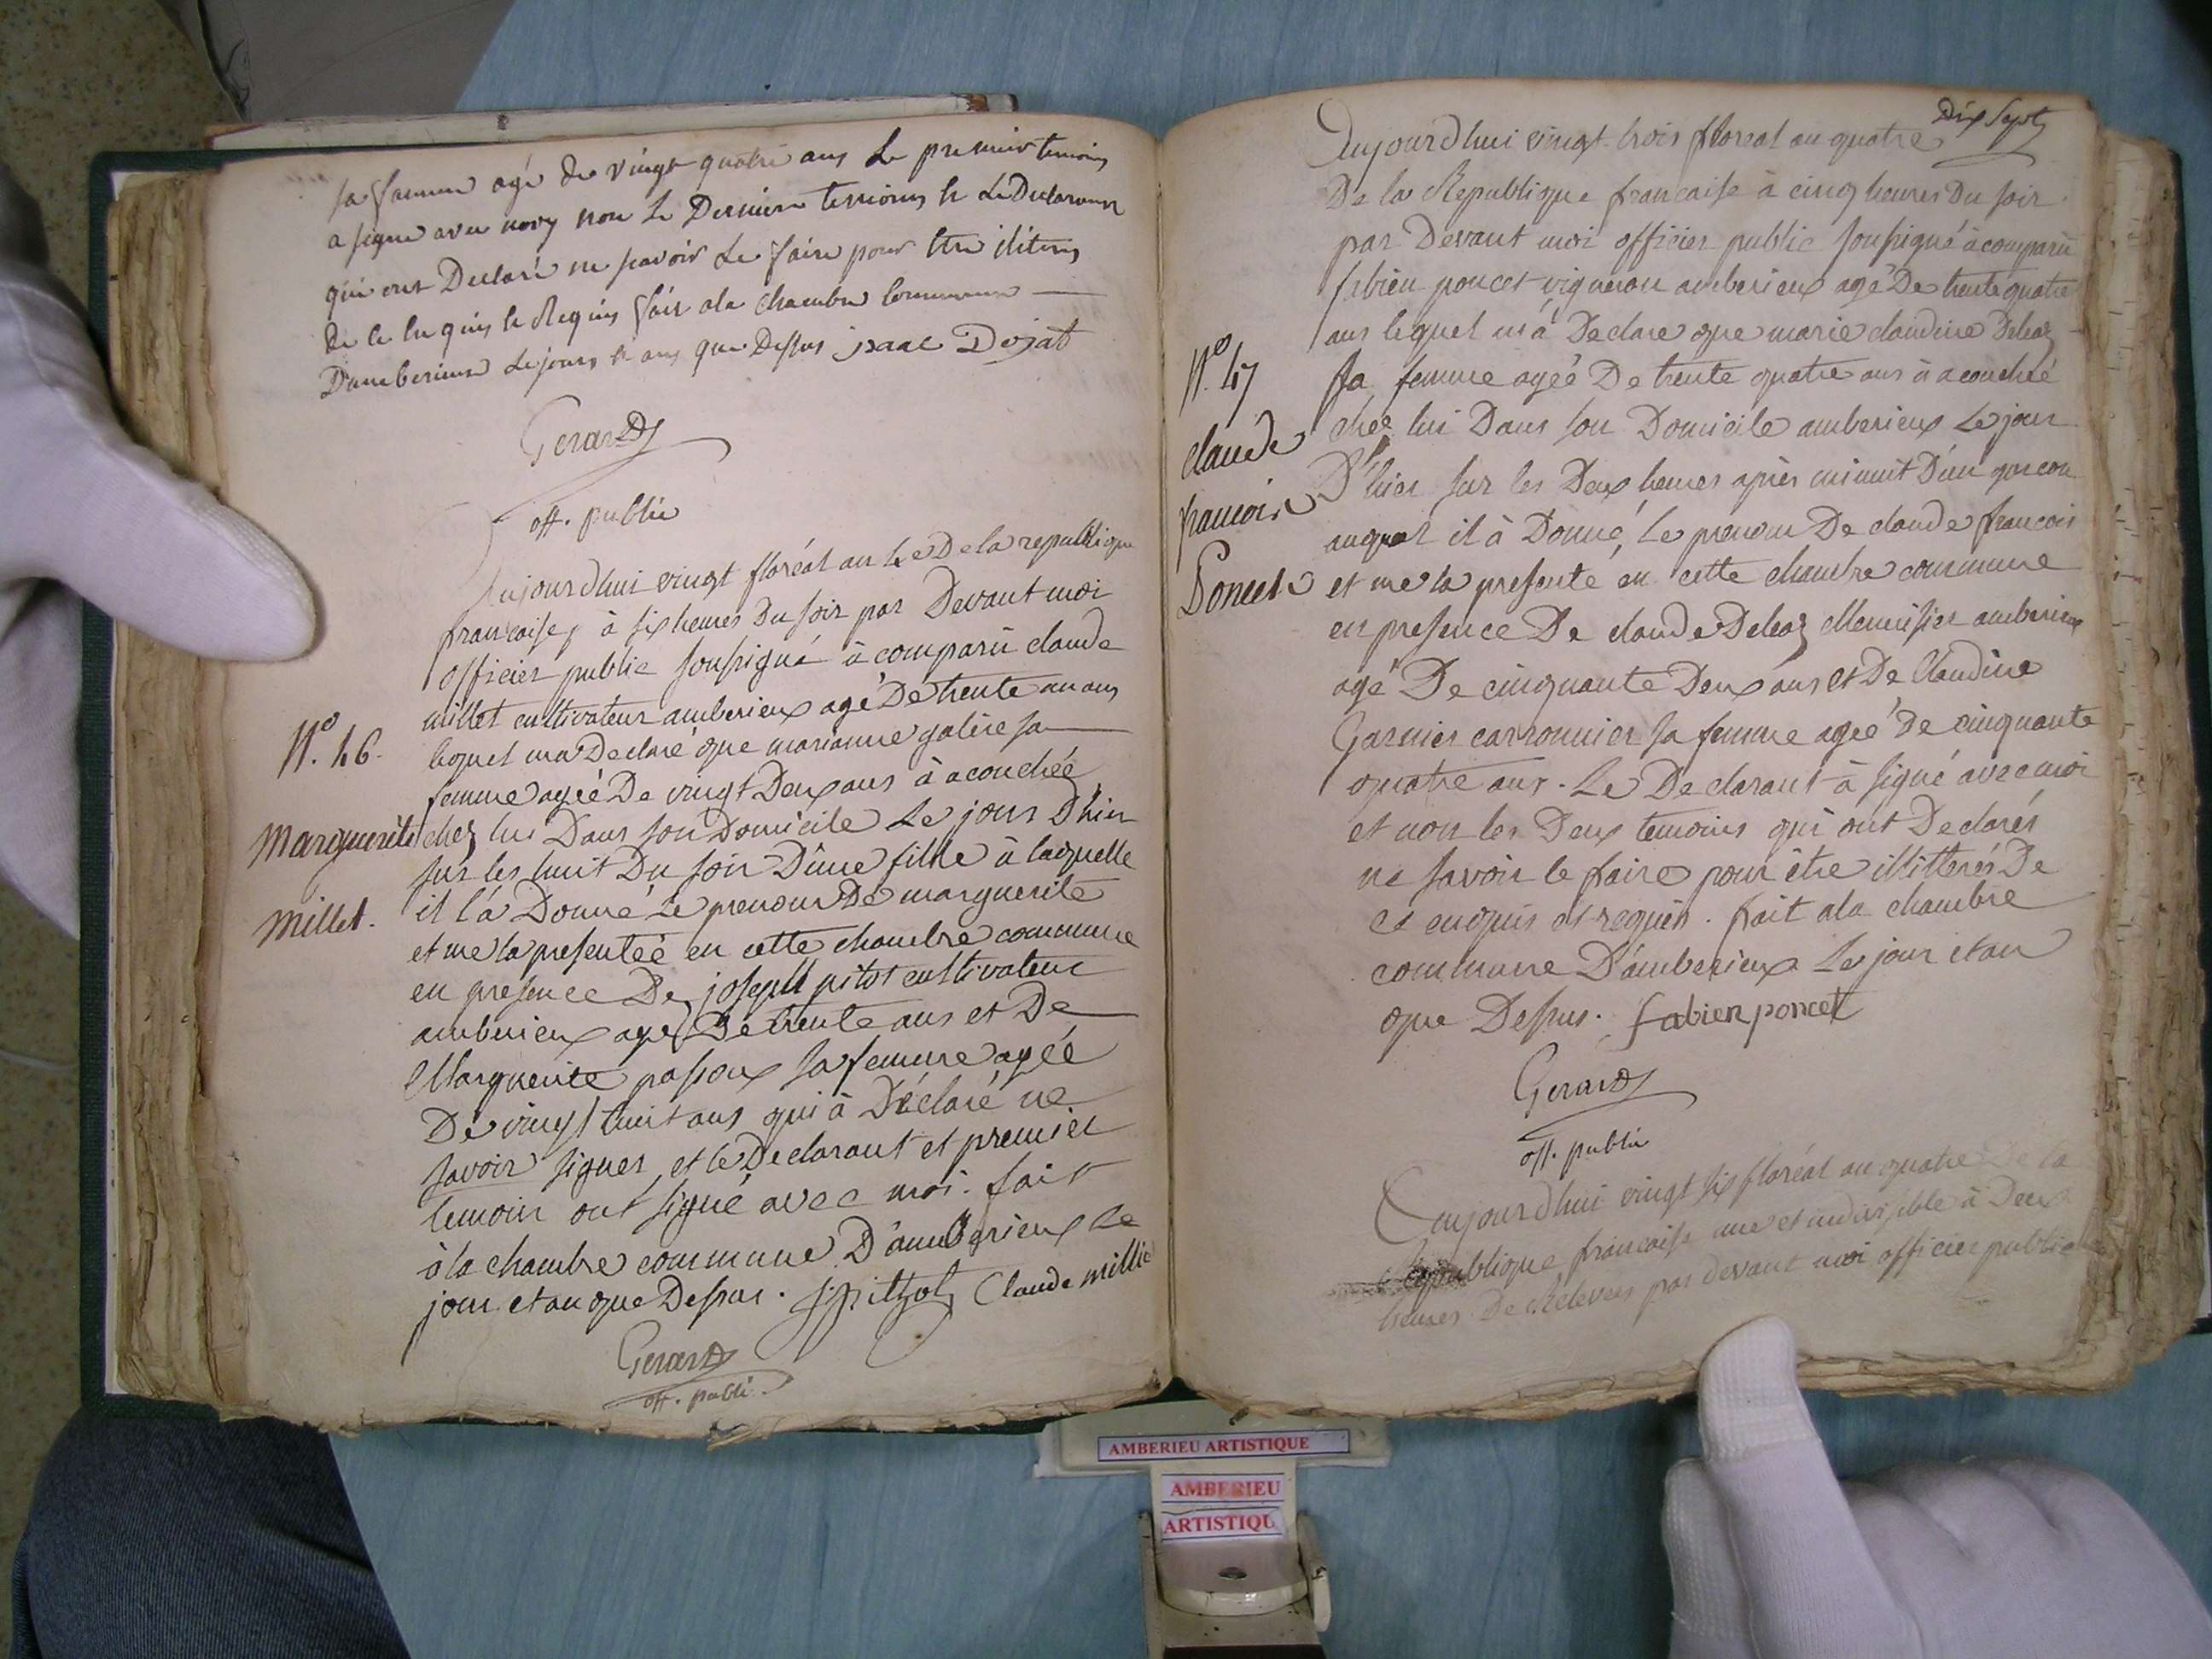 sa femme agé de vingt quatre ans Le premier temoins
a signe avec moy non Le Dernier temoins & Le Declarant
qui ont Declaré ne scavoir Le faire pour etre iliteres
de ce Enquis & Requis fait ala chambre Commune
Damberieux Le jours & ans que Dessus isaac Dojat
Gerard
off. public
Aujourdhui vingt floréal an 4e De la republique
francaise, à six heures Du soir par Devant moi
officier public soussigné à comparû claude
millet cultivateur amberieux agé De trente un ans
N.º 46.
lequel ma Declaré que marianne galére sa
femme ageé De vingt Deux ans à acouchée
Marguerite
chez lui Dans son Domicile Le jours D'hier
sur les huit Du soir D'une fille à laquelle
Millet.
il l'a Donné Le prenom De marguerite
et me la presenteé en cette chambre commune
en presence De joseph pitot cultivateur
amberieux agé De trente ans et De
Marguerite passoux sa femme ageé
De vingt huit ans qui à Déclaré ne
savoir signer, et le Declarant et premier
temoin ont signé avec moi. fait
à la chambre commune D'amberieux Le
jour et an que Dessus. J pitzot Claude millie
Gerard
off. publi.
Dix Sept
Aujourdhui vingt trois floreal an quatre
De la Republique francaise à cinq heures Du soir
par Devant moi officier public soussigné à comparû
fabien poncet vigneron amberieux agé De trente quatre
ans lequel m'a Declare que marie claudine Deleaz
N.º 47
sa femme ageé De trente quatre ans à acouchée
claude
cheé lui Dans son Domicile amberieux Le jour
D'hier sur les Deux heures après minuit D'un garcon
francois
auquel il à Donné Le prenom De claude francois
Poncet
et me la presenté en cette chambre commune
en presence De claude Deleaz Menuisier amberieux
agé De cinquante Deux ans et De Claudine
Garnier carronnier sa femme ageé De cinquante
quatre ans. Le Declarant à signé avec moi
et non les Deux temoins qui ont Declarés
ne savoir le faire pour être illitterés De
ce enquis et requis. fait ala chambre
commune D'amberieux Le jour et an
que Dessus. fabien poncet
Gerard
off. public
Aujourdhui vingt six floréal an quatre De la
Republique francaise une et indivisible à Deux
heures De Relevées par devant moi officier public
AMBERIEU ARTISTIQUE
AMBERIEU
ARTISTIQU